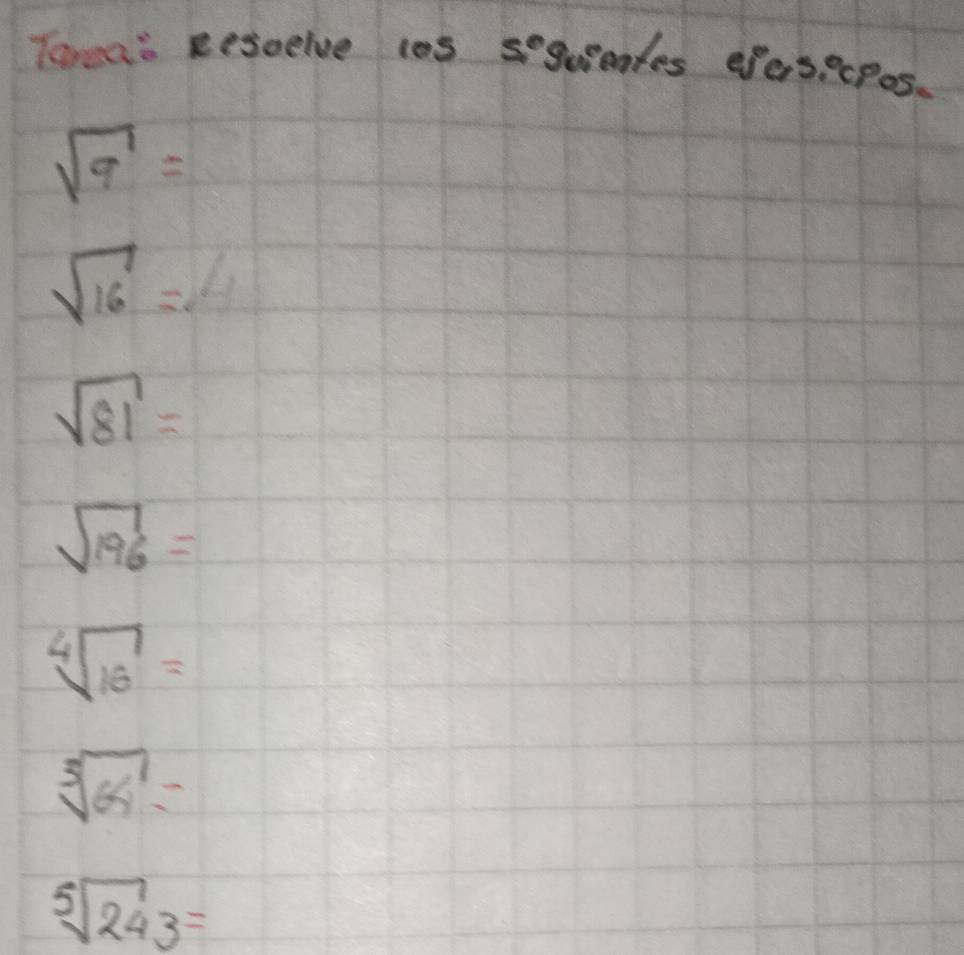 Tarea: Resoelve los siguientes ejersicios.
√9 =
√16 = 4
√81 =
√196 =
⁴√16 =
³√64 =
⁵√243 =